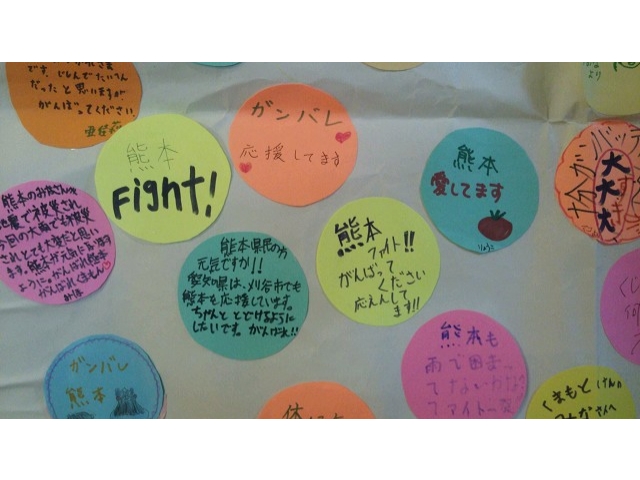 です。じしんでたいへん
だったと思いますが
がんばってください。
熊本
Fight!
ガンバレ
応援してます
熊本
愛してます
大
大
大
熊本のお皆さんへ
地震で被災され
今回の大雨でも被災
されとても大変だと思い
ます。熊本が元気になります
ように。がんばれ熊本
がんばれくまモン
熊本県民の方
元気ですか!!
愛知県は、刈谷市でも
熊本を応援しています。
ちゃんととどけるように
したいです。がんばれ!!
熊本
ファイト!!
がんばって
ください
応えんして
ます!!
ガンバレ
熊本
熊本も
雨で困まっ
てないかな
ファイトー
くまもとけんの
さんへ